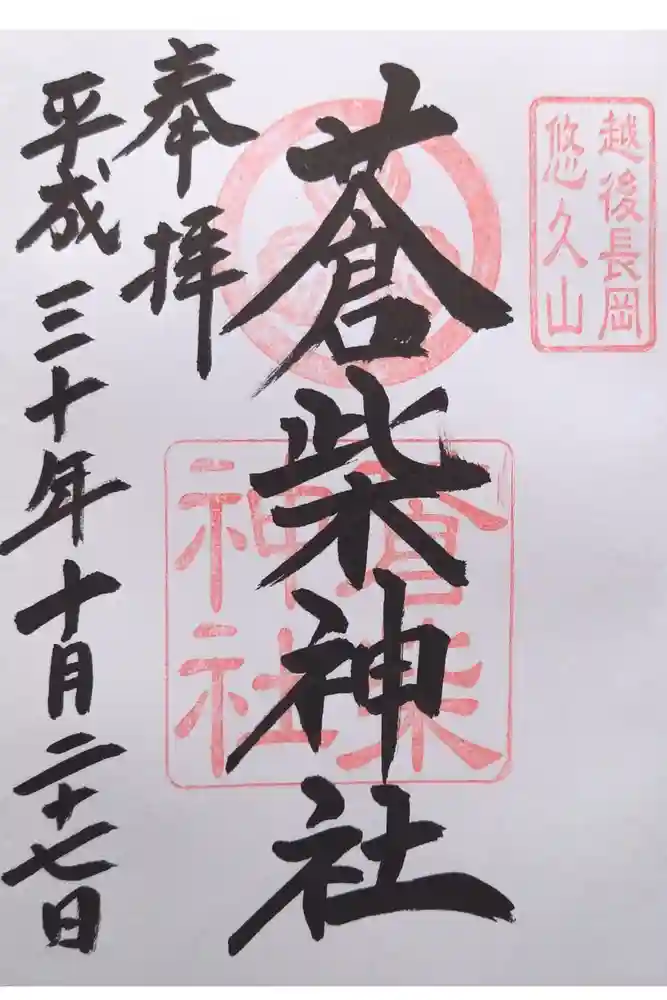 越後長岡
悠久山
蒼柴神社
蒼柴
神社
奉拝
平成三十年十月二十七日